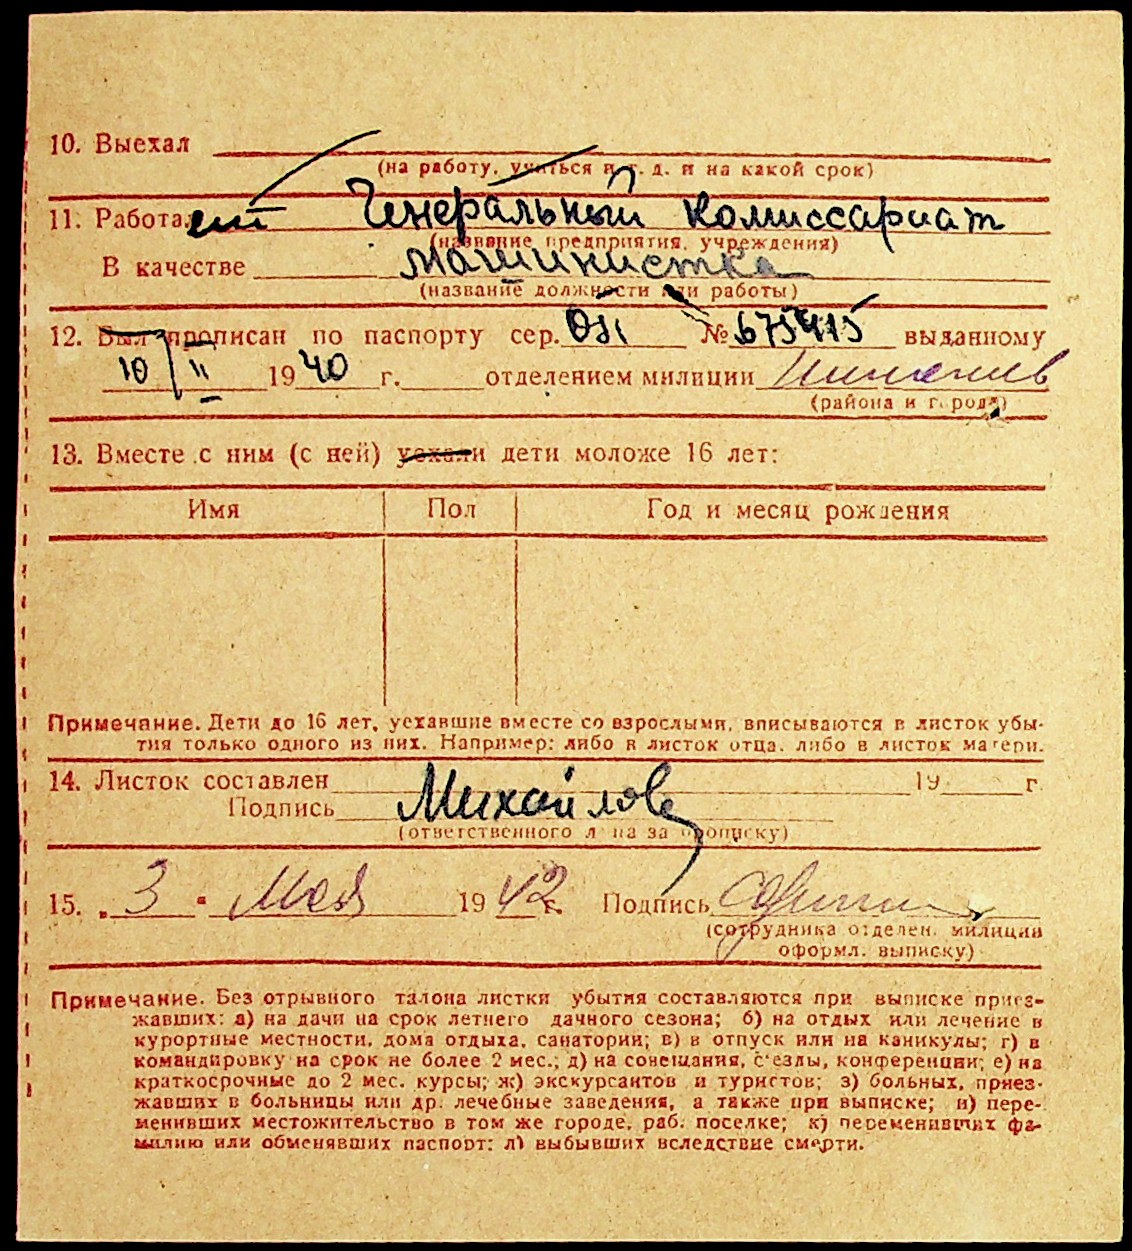 10. Выехал
(на работу, учиться и т. д. и на какой срок)
11. Работает Генеральный комиссариат
(название предприятия, учреждения)
В качестве машинистка
(название должности или работы)
12. Был прописан по паспорту сер. № 675415 выданному
10/II 1940 г. отделением милиции
(района и города)
13. Вместе с ним (с ней) уехали дети моложе 16 лет:
Имя Пол Год и месяц рождения
Примечание. Дети до 16 лет, уехавшие вместе со взрослыми, вписываются в листок убы-
тия только одного из них. Например: либо в листок отца, либо в листок матери.
14. Листок составлен 19 г.
Подпись Михайлова
(ответственного лица за прописку)
15. „3" Мая 1942 г. Подпись
(сотрудника отделен. милиции
оформл. выписку)
Примечание. Без отрывного талона листки убытия составляются при выписке приез-
жавших: а) на дачи на срок летнего дачного сезона; б) на отдых или лечение в
курортные местности, дома отдыха, санатории; в) в отпуск или на каникулы; г) в
командировку на срок не более 2 мес.; д) на совещания, с'езды, конференции; е) на
краткосрочные до 2 мес. курсы; ж) экскурсантов и туристов; з) больных, приез-
жавших в больницы или др. лечебные заведения, а также при выписке; и) пере-
менивших местожительство в том же городе, раб. поселке; к) переменивших фа-
милию или обменявших паспорт; л) выбывших вследствие смерти.